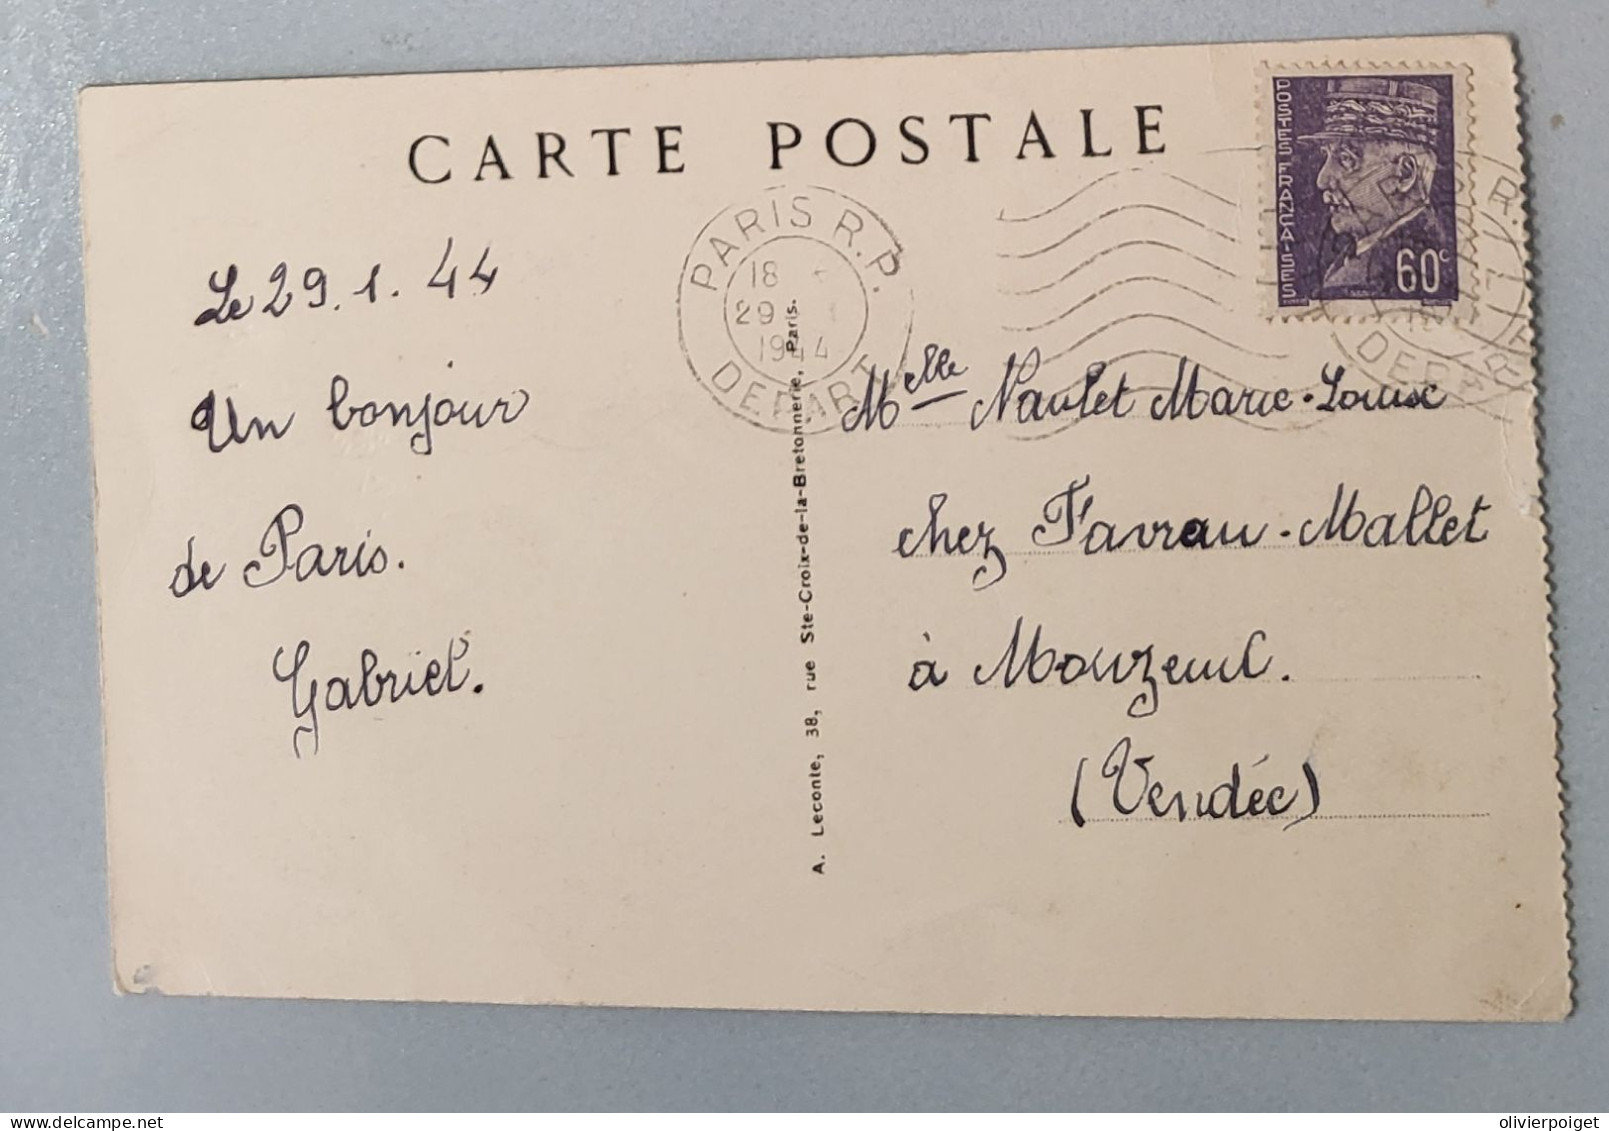 CARTE POSTALE
Le 29.1.44
Un bonjour
de Paris.
Gabriel.
PARIS R.P.
18
29
1944
DEPART
A. Leconte, 38, rue Ste-Croix-de-la-Bretonnerie, Paris.
POSTES FRANÇAISES
60c
DEPAR
Melle Naulet Marie-Louise
chez Favrau-Mallet
à Mouzeuil.
(Vendée)
olivierpoiget